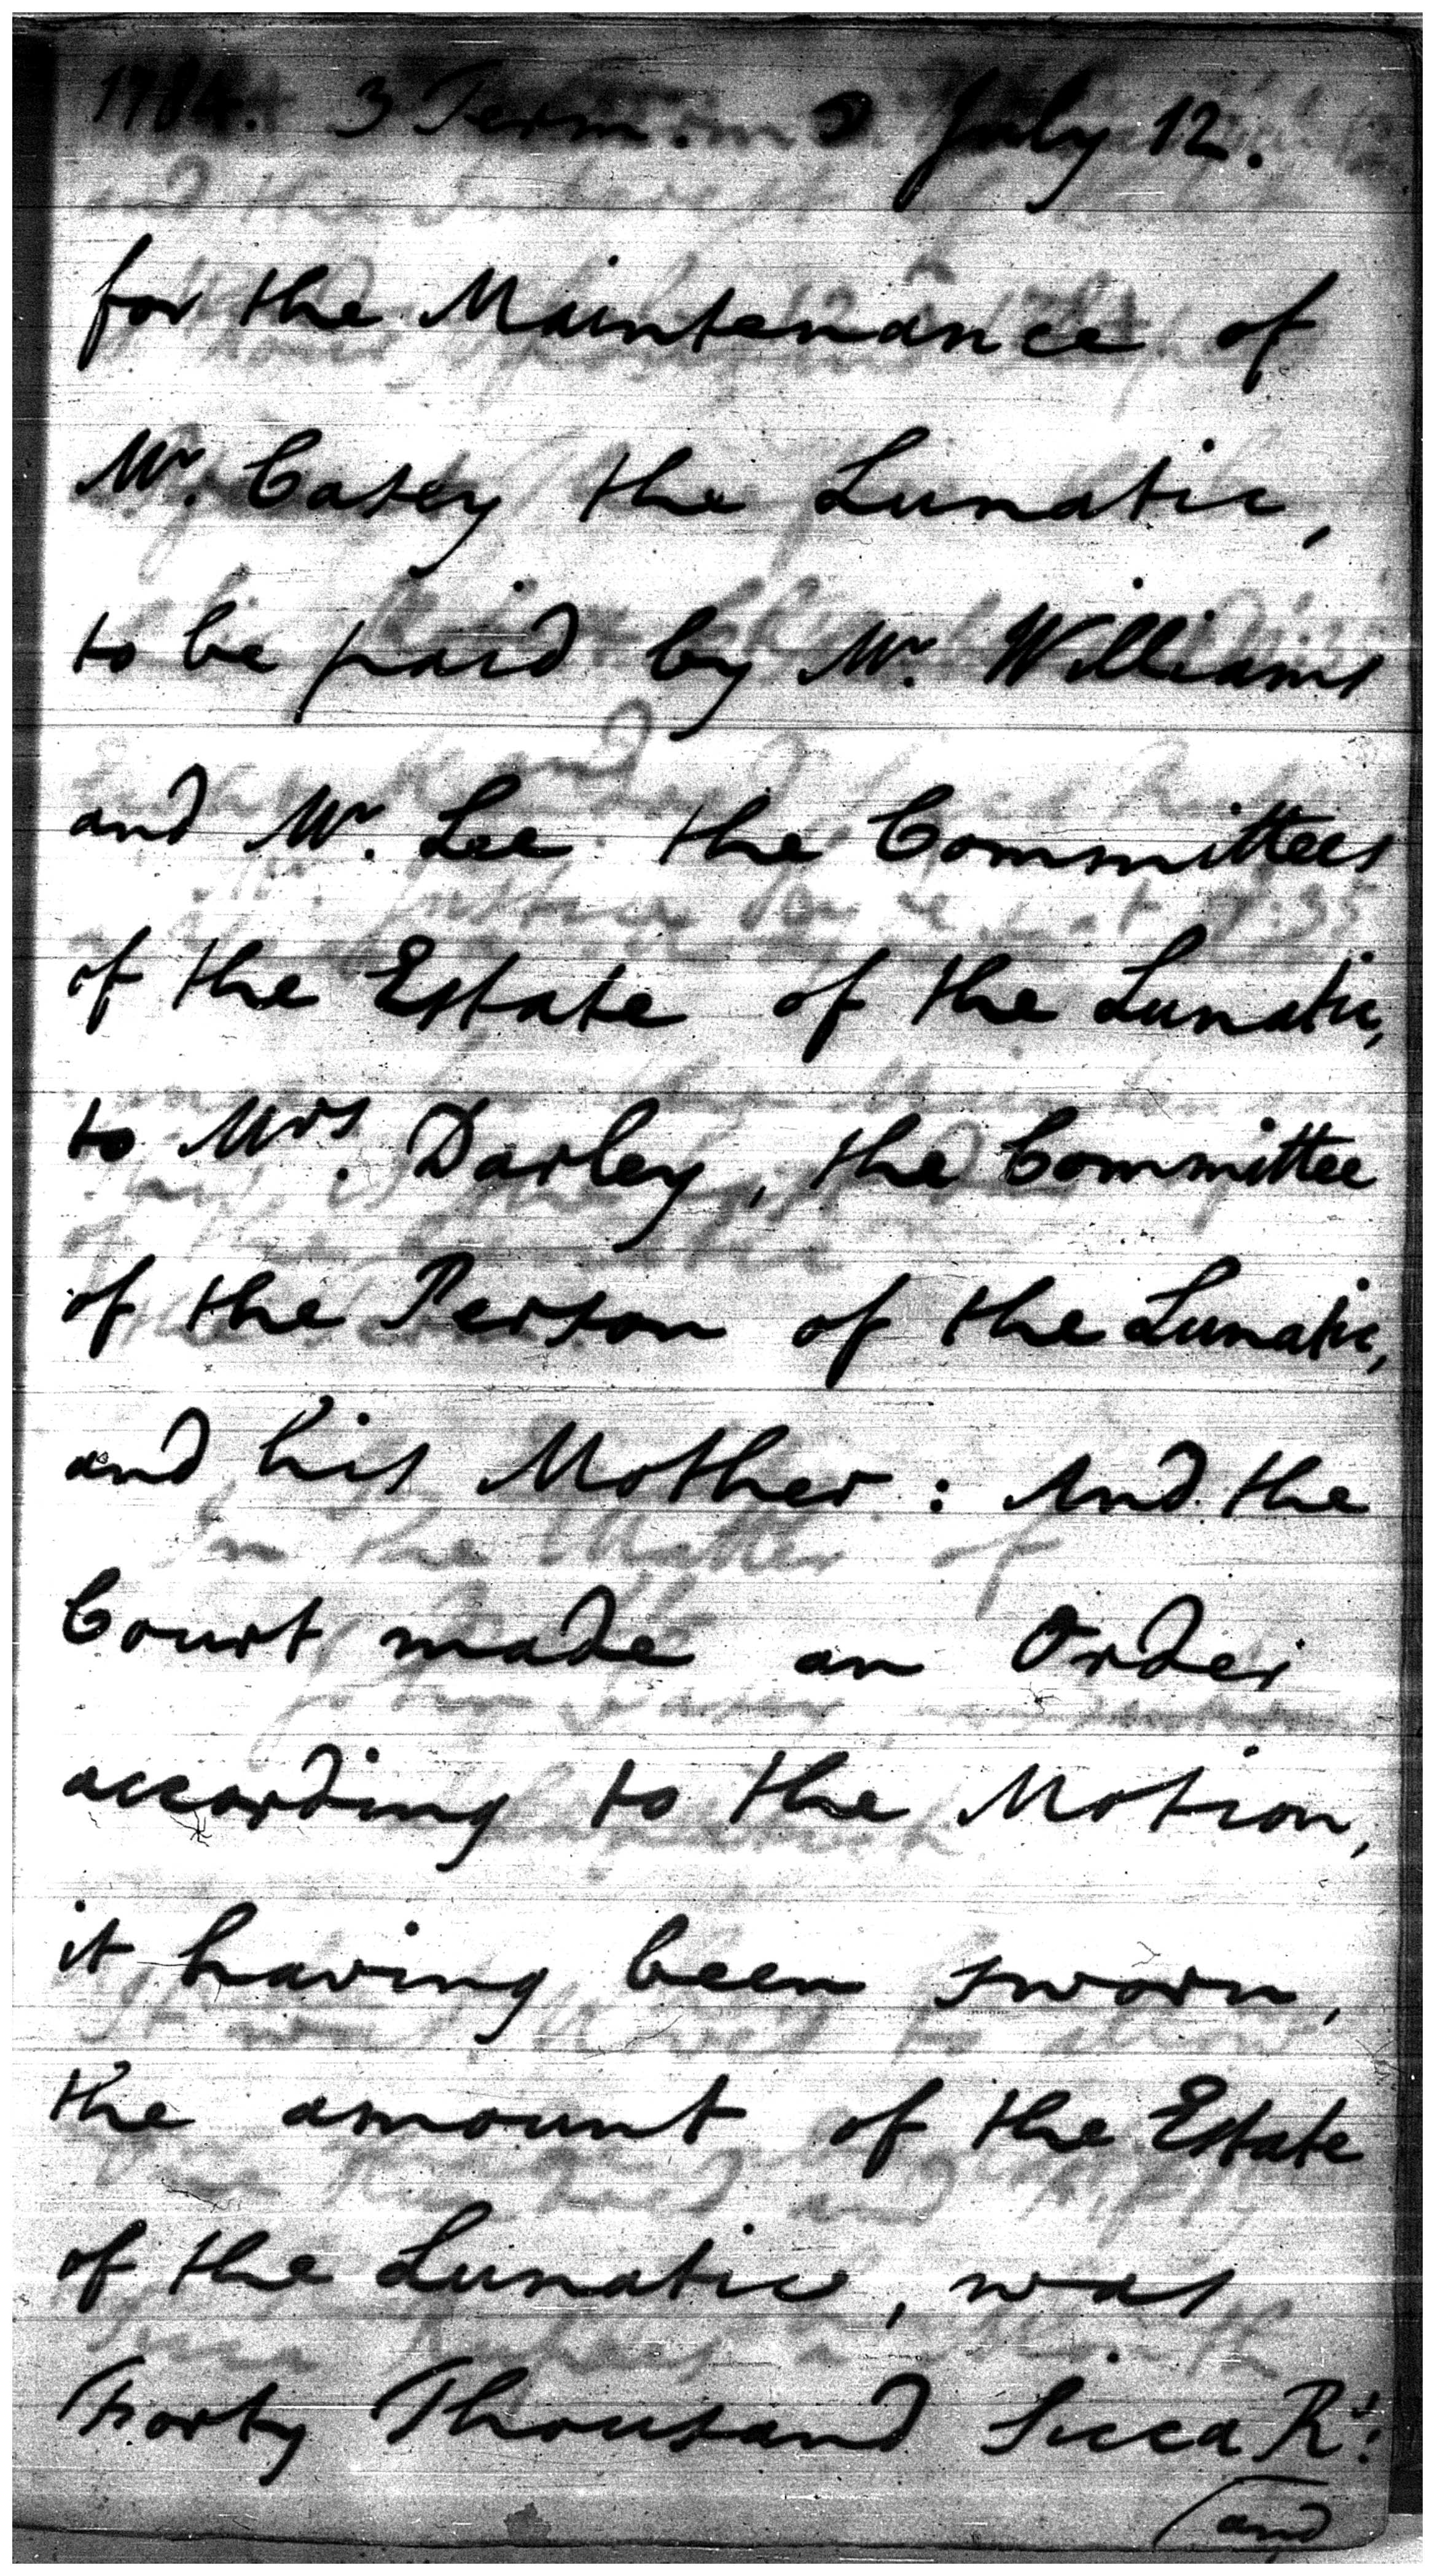 1784. 3 Term. July 12.
for the Maintenance of
Mr. Casey the Lunatic,
to be paid by Mr. Williams
and Mr. Lee the Committees
of the Estate of the Lunatic,
to Mrs. Darley, the Committee
of the Person of the Lunatic,
and his Mother: And the
Court made an Order
according to the Motion,
it having been sworn,
the amount of the Estate
of the Lunatic, was
Forty Thousand Sicca Rs:
(and